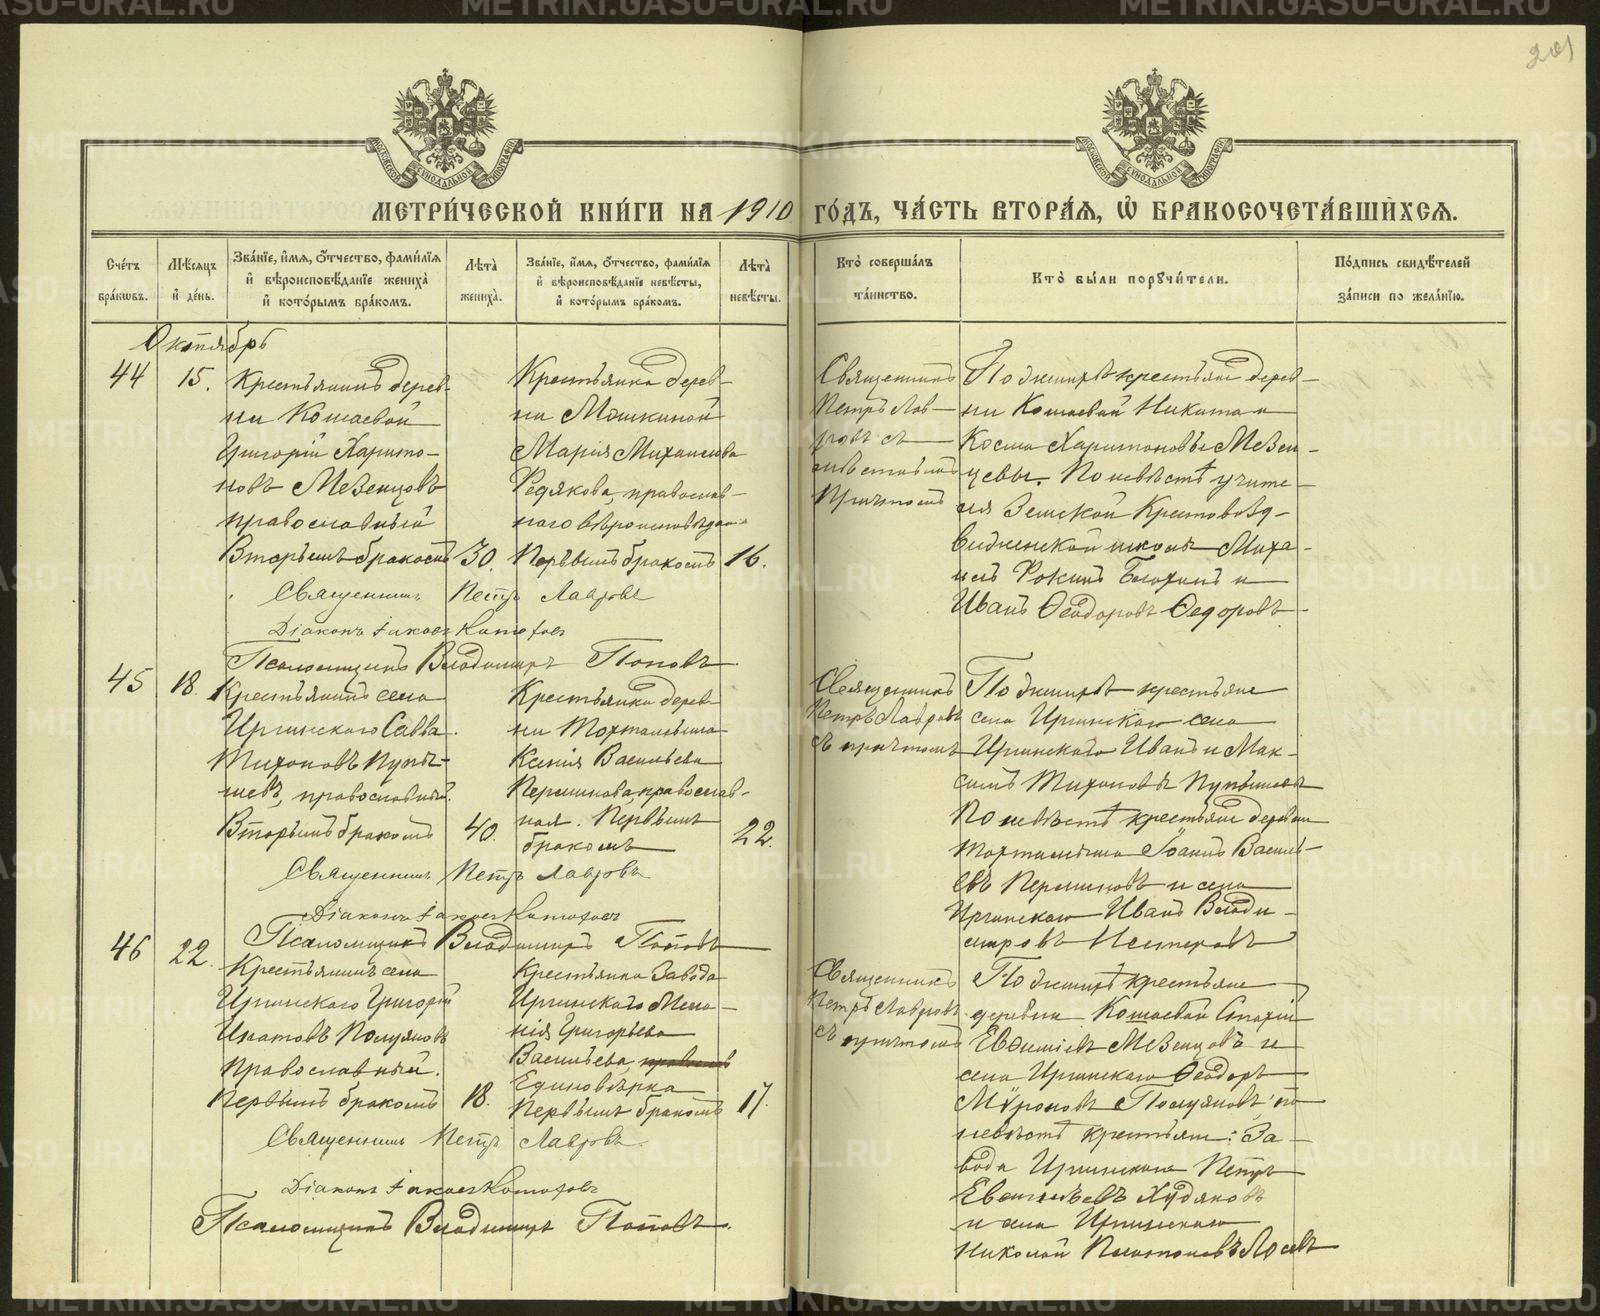 METRIKI.GASO-URAL.RU
201
МОСКОВСКОЙ СѴНОДАЛЬНОЙ ТИПОГРАФІИ
МОСКОВСКОЙ СѴНОДАЛЬНОЙ ТИПОГРАФІИ
МЕТРИ́ЧЕСКОЙ КНИ́ГИ НА 1910 ГО́ДЪ, ЧА́СТЬ ВТОРА́Я, Ѡ҆ БРАКОСОЧЕТА́ВШИХСЯ.
Сче́тъ бра́кѡвъ.
Мѣ́сяцъ и҆ де́нь.
Зва́нїе, и҆́мя, ѻ҆́тчество, фами́лїя и҆ вѣроисповѣ́данїе жениха̀ и҆ кото́рымъ бра́комъ.
Лѣ́та жениха̀.
Зва́нїе, и҆́мя, ѻ҆́тчество, фами́лїя и҆ вѣроисповѣ́данїе невѣ́сты, и҆ кото́рымъ бра́комъ.
Лѣ́та невѣ́сты.
Кто̀ соверша́лъ та́инство.
Кто̀ бы́ли порꙋчи́тели.
По́дпись свидѣ́телей за́писи по жела́нїю.
Октябрь
44
15.
Крестьянинъ дерев-
ни Кошаевой
Григорій Харито-
новъ Мезенцовъ
православный
Вторымъ бракомъ
30.
Крестьянка дерев-
ни Мошкиной
Марія Михаилова
Редякова, православ-
наго вѣроисповѣдан.
Первымъ бракомъ
16.
Священникъ
Петръ Лав-
ровъ съ
мѣстнымъ
Причтомъ
По женихѣ крестьяне дерев-
ни Кошаевой Никита и
Косма Харитоновы Мезен-
цевы. По невѣстѣ учите-
ля Земской Крестовозд-
виженской школы Миха-
илъ Фокинъ и
Иванъ Ѳеодоровъ Ѳедоровъ
Священникъ Петръ Лавровъ
Діаконъ Іаковъ
Псаломщикъ Владимиръ Поповъ.
45
18.
Крестьянинъ села
Иргинскаго Савва
Тихоновъ Пупы-
шевъ, православный.
Вторымъ бракомъ
40.
Крестьянка дерев-
ни Тохтамыша
Ксенія Васильева
Перминова, православ-
ная. Первымъ
бракомъ
22.
Священникъ
Петръ Лавровъ
съ причтомъ
По женихѣ крестьяне
села Иргинскаго села
Иргинскаго Иванъ и Мак-
симъ Тихоновы Пупышевы
По невѣстѣ крестьяне деревни
Тохтамыша Іоаннъ Василь-
евъ Перминовъ и села
Иргинскаго Иванъ Влади-
мировъ Нестеровъ
Священникъ Петръ Лавровъ
Діаконъ Іаковъ
Псаломщикъ Владимиръ Поповъ
46
22.
Крестьянинъ села
Иргинскаго Григорій
Игнатовъ Полуяновъ
Православный.
Первымъ бракомъ
18.
Крестьянка Завода
Иргинскаго Мела-
нія Григорьева
Васильева,
Единовѣрка
Первымъ бракомъ
17.
Священникъ
Петръ Лавровъ
съ причтомъ
По женихѣ крестьяне
деревни Кошаевой
Евѳиміевъ Мезенцовъ и
села Иргинскаго Ѳеодоръ
Мѵроновъ Полуяновъ; по
невѣстѣ крестьяне: За-
вода Иргинскаго Петръ
Худяковъ
и села Иргинскаго
Николай Платоновъ Лосевъ
Священникъ Петръ Лавровъ.
Діаконъ Іаковъ
Псаломщикъ Владимиръ Поповъ.